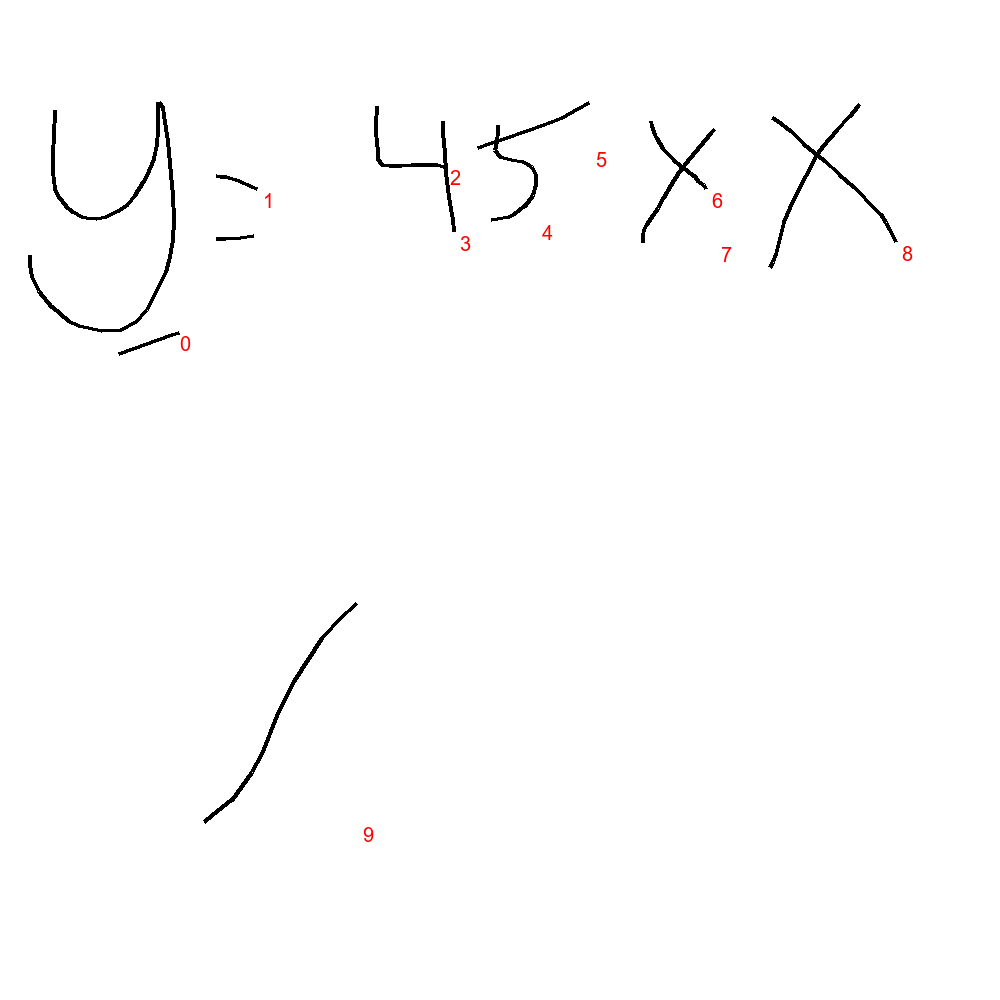 y = 45 x X
0 1 2 3 4 5 6 7 8
/ 9